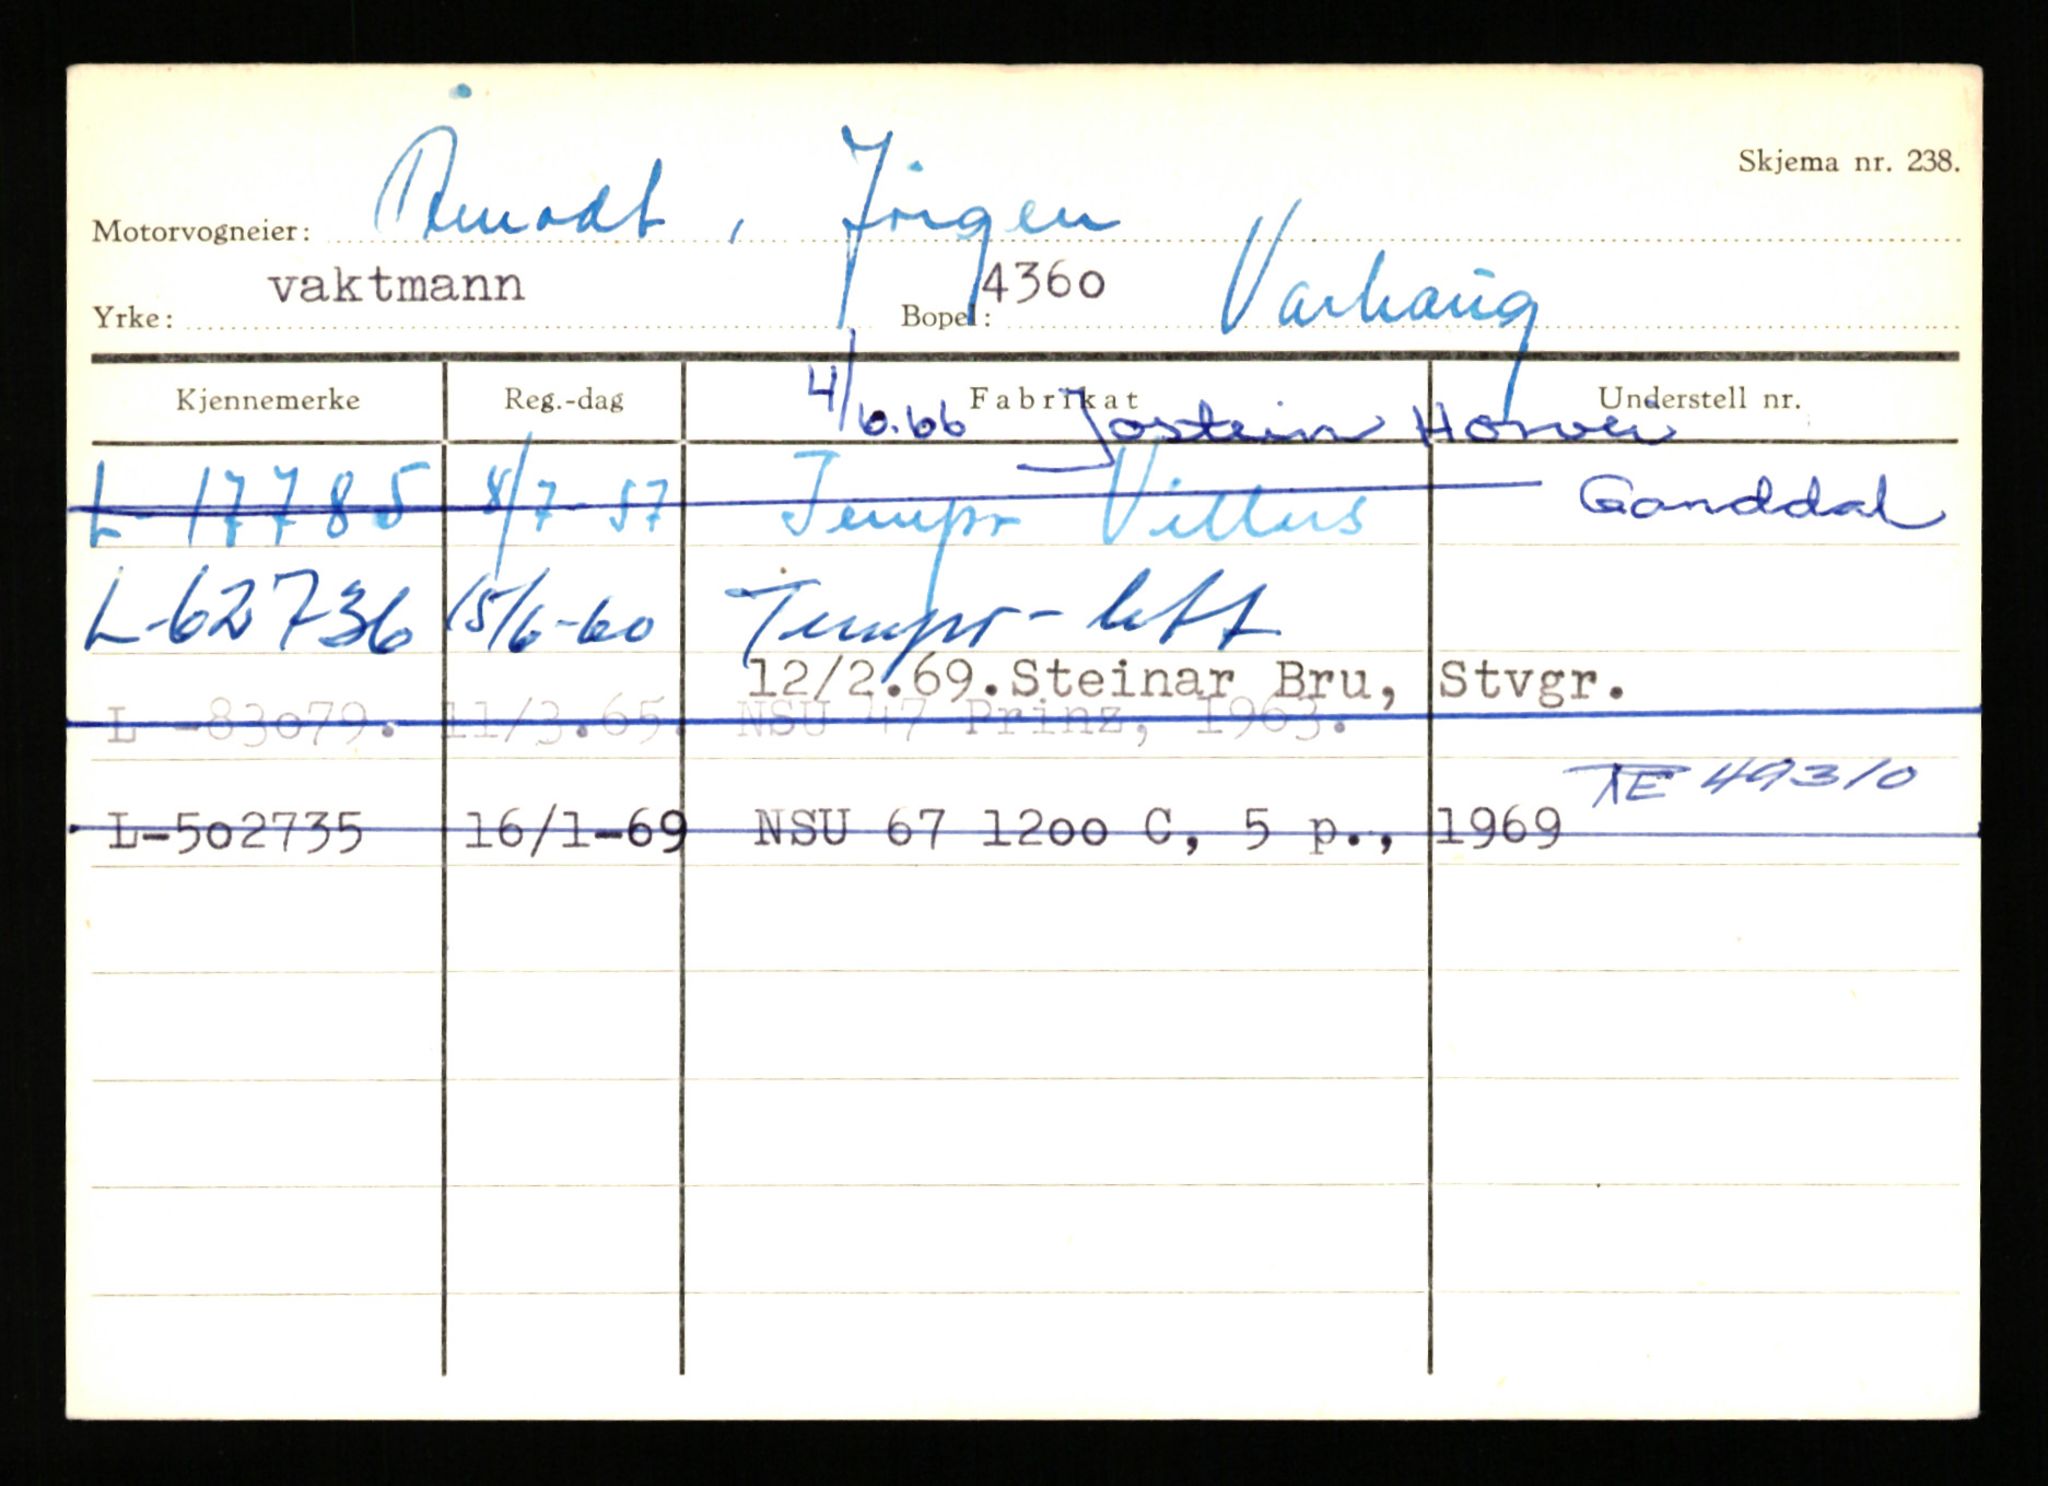 Skjema nr. 238.
Motorvogneier: Ånodt, Jörgen
Yrke: vaktmann Bopel: 4360 Varhaug
Kjennemerke Reg.-dag Fabrikat Understell nr.
4/6.66 Jostein Horve
L-17785 8/7-57 Tempo Villus Ganddal
L-62736 15/6-60 Tempo-lett
12/2.69. Steinar Bru, Stvgr.
L -83079. 11/3.65. NSU 47 Prinz, 1963.
TE 49310
L-502735 16/1-69 NSU 67 1200 C, 5 p., 1969